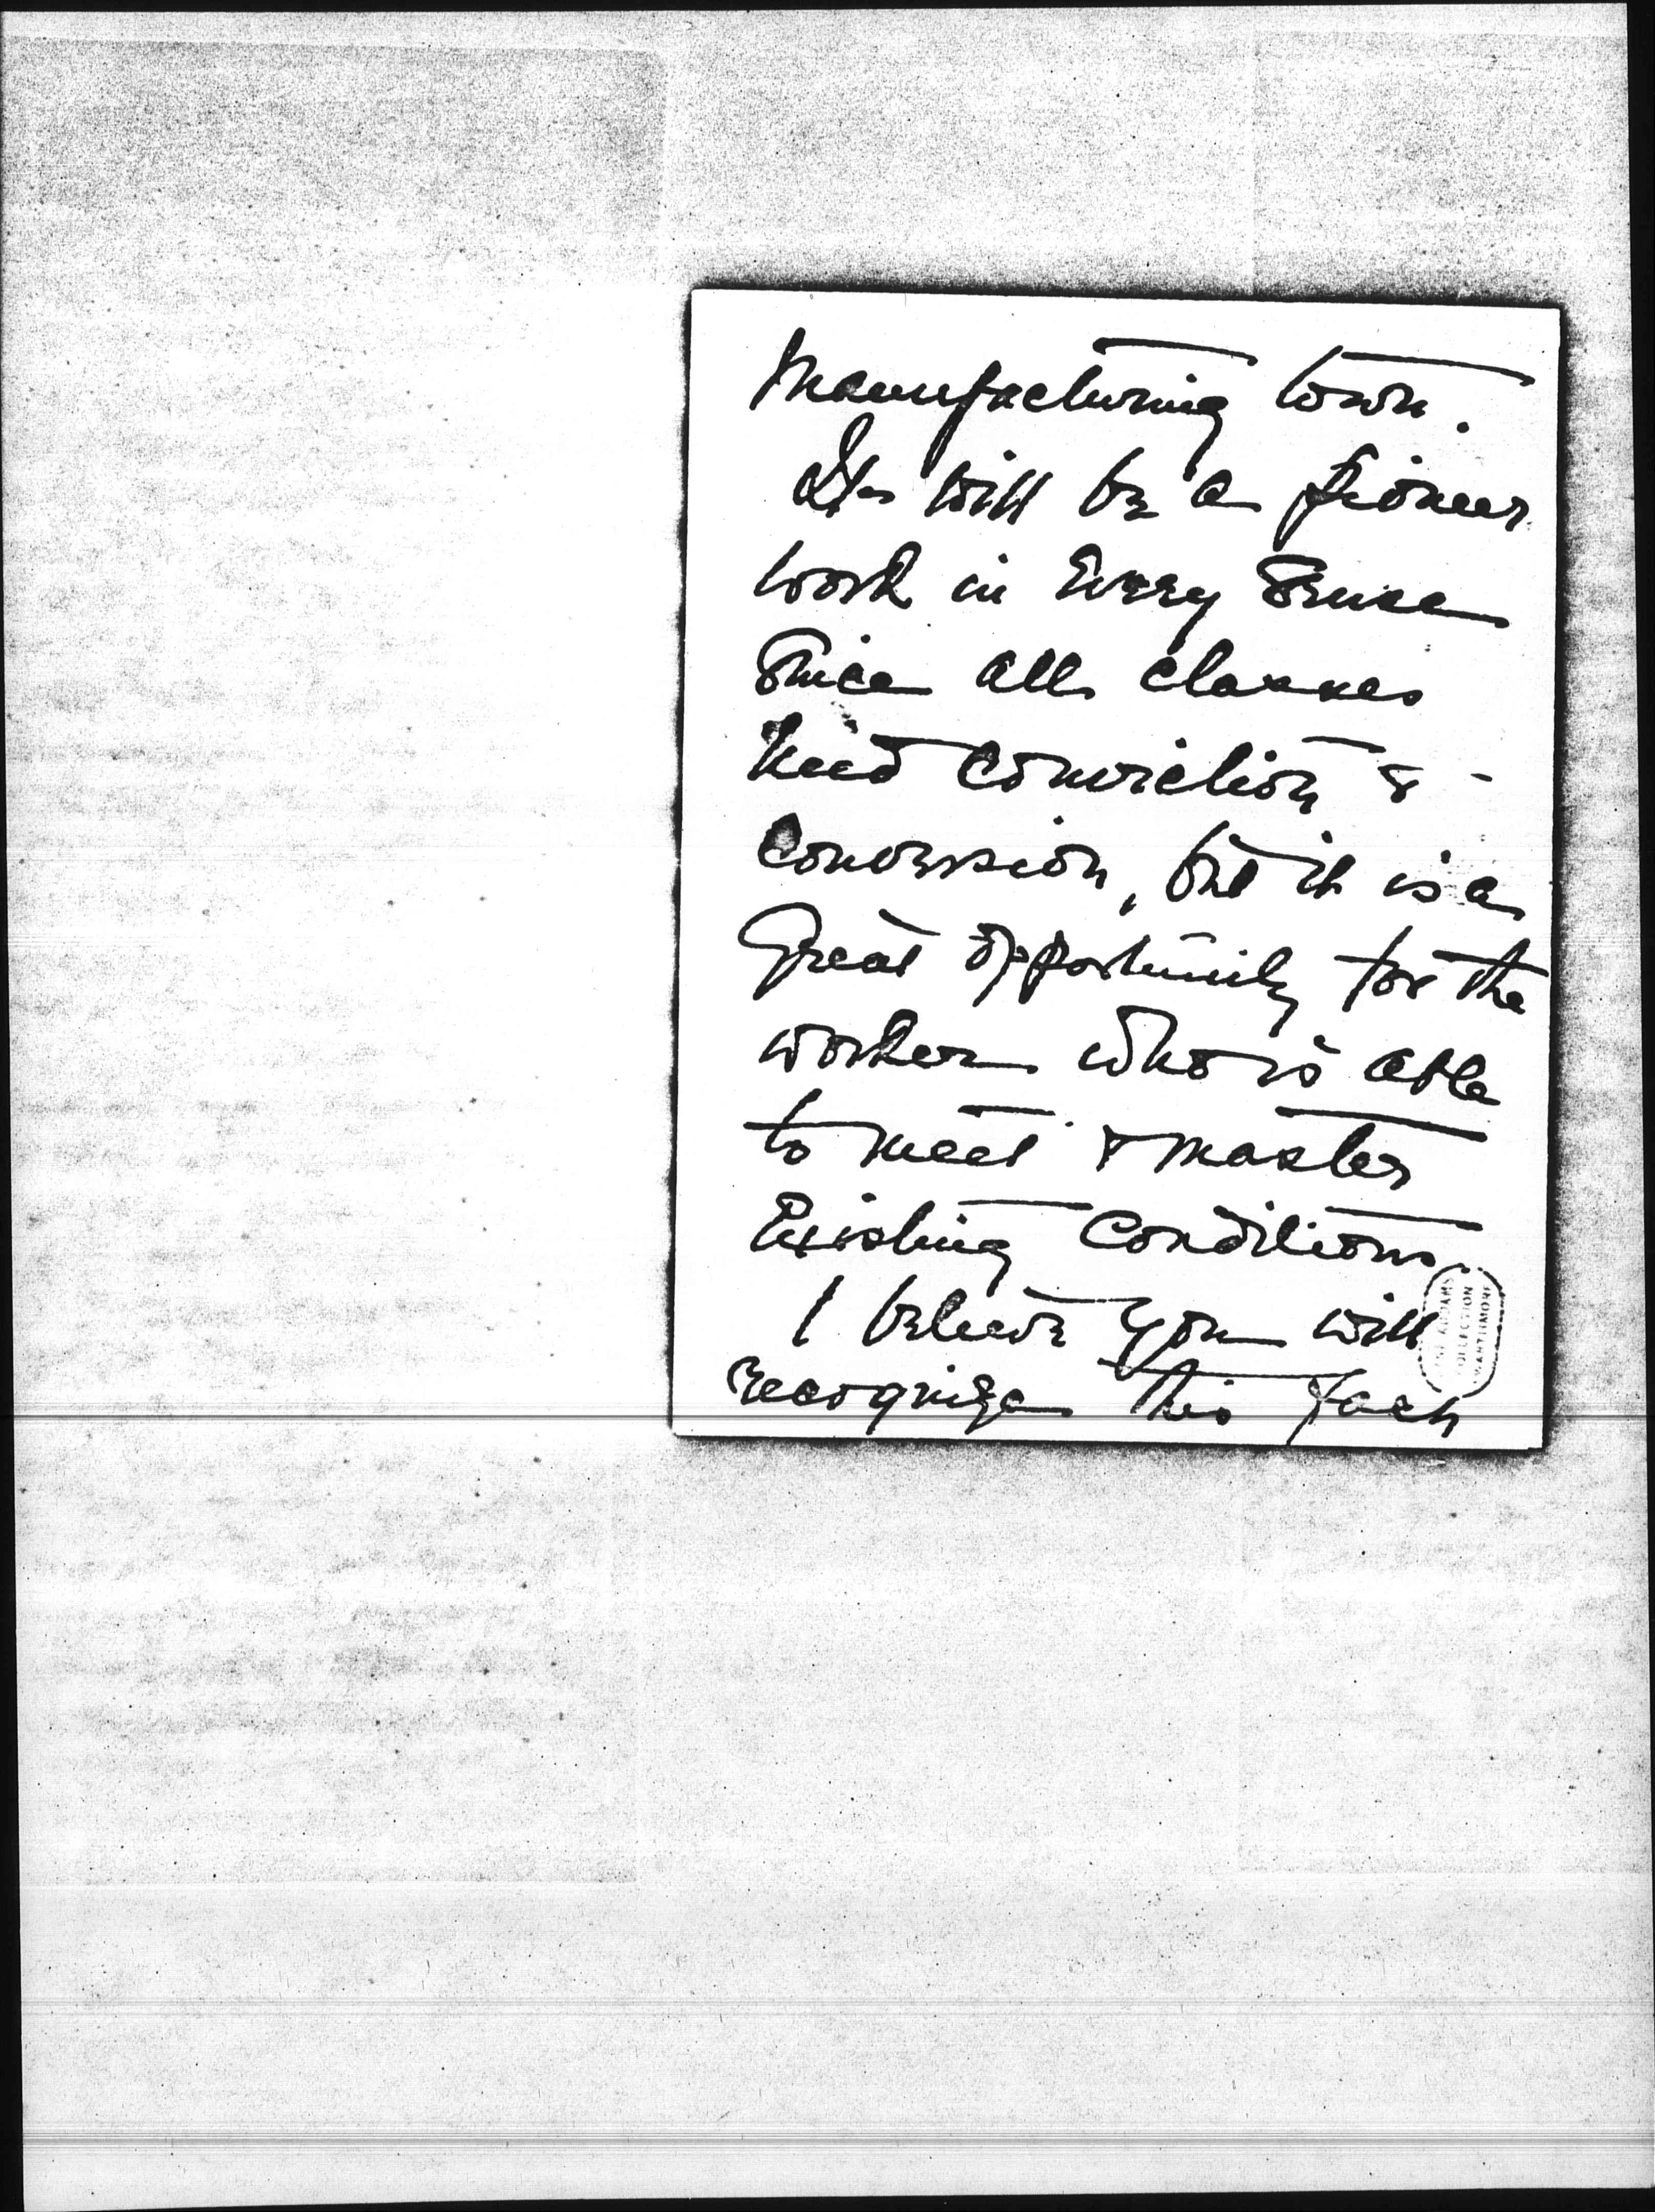 Manufacturing town.
It will be a pioneer
work in Every Sense
Since all classes
need conviction &
conversion, but it is a
great opportunity for the
worker who is able
to meet & master
Existing Conditions.
I believe you will
recognize this fact
COLLECTION
SWARTHMORE